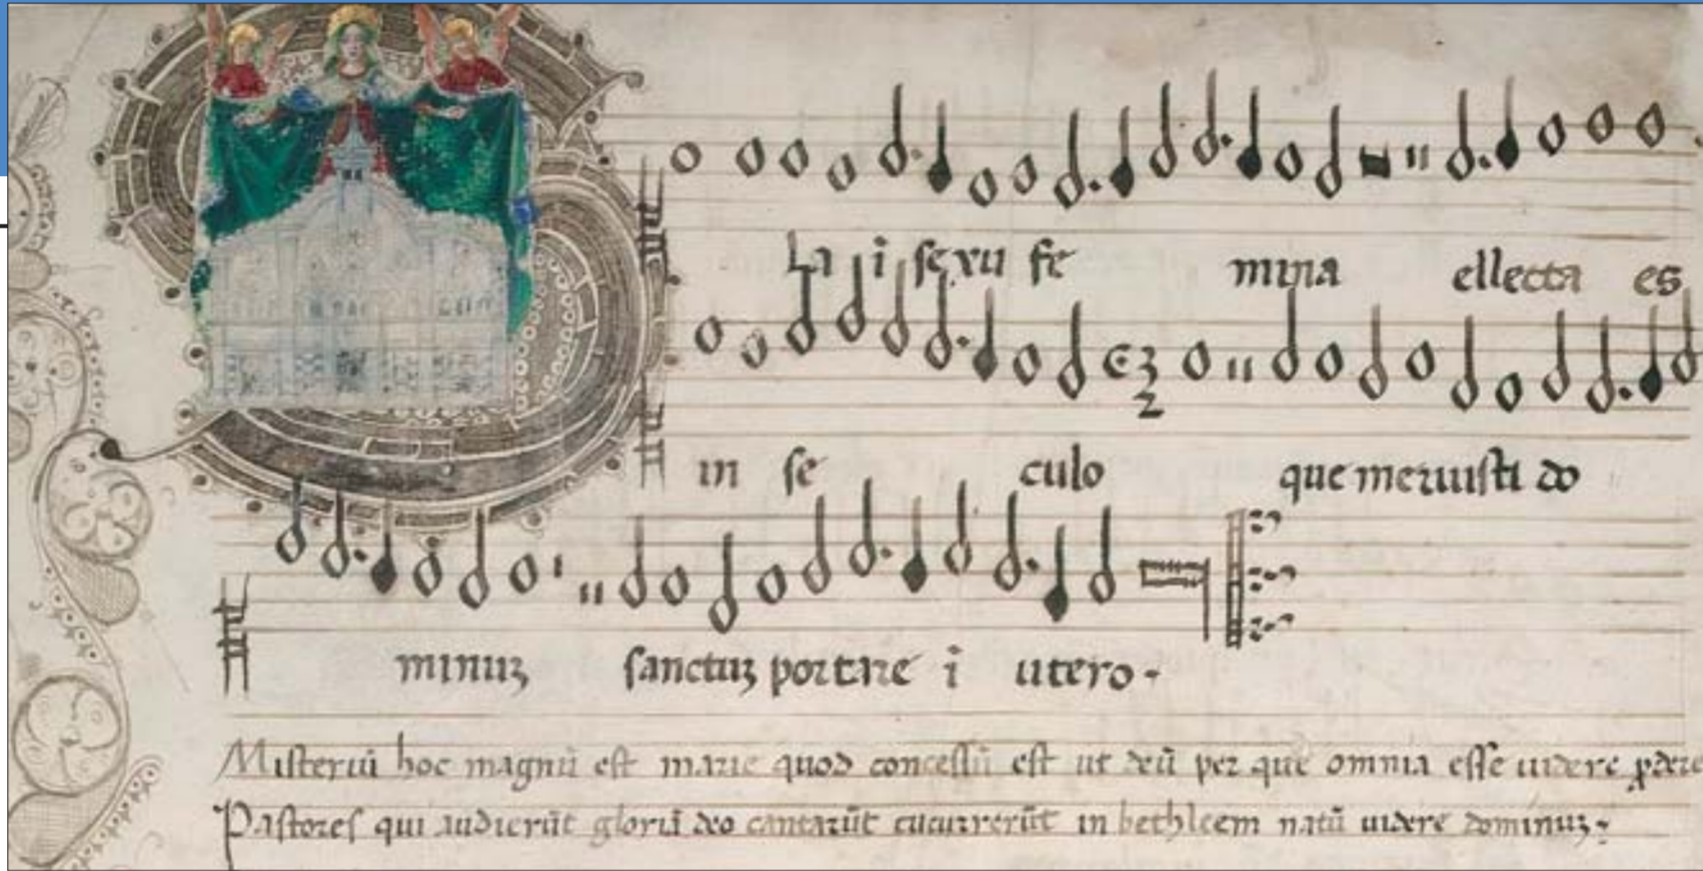 La i sexu fe mina ellecta es
in se culo que meruisti do
minuʒ sanctuʒ portare i utero.
Misteriū hoc magnū est marie quod concessū est ut deū per quē omnia esse videre
Pastores qui audierūt gloriā deo cantarūt cucurrerūt in bethleem natū videre dominuʒ